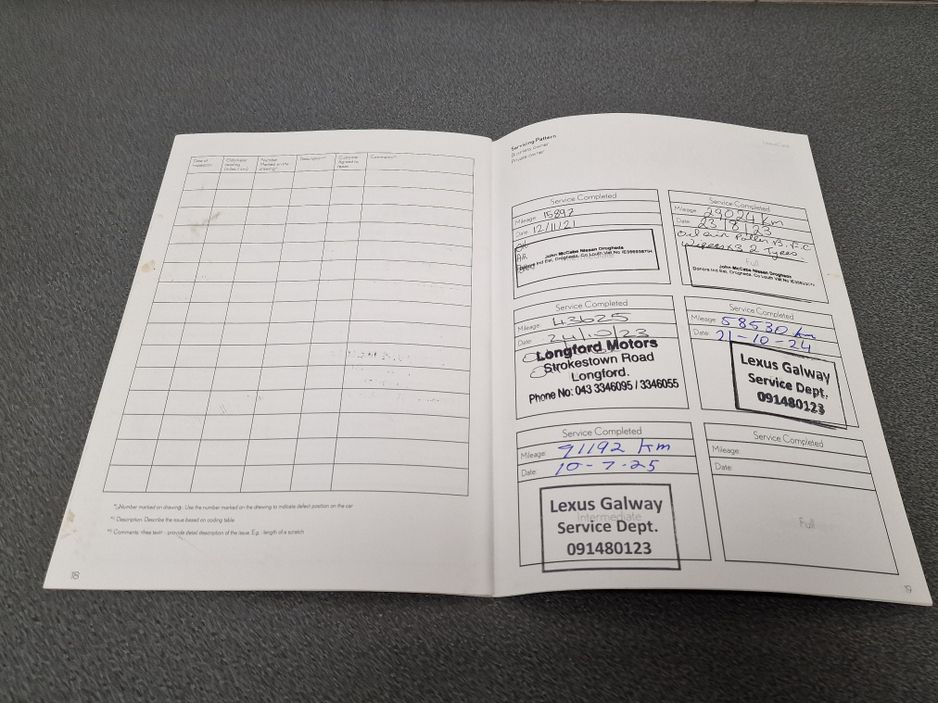 Date of
Number
Marked on the
drawing*¹
Description*²
Customer
Agreed to
repair
Comments*³
*¹ Number marked on drawing: Use the number marked on the drawing to indicate defect position on the car
*² Description: Describe the issue based on coding table
*³ Comments 'free text' - provide detail description of the issue. E.g. : length of a scratch
18
Servicing Pattern
Business owner
Private owner
Service Completed
Mileage: 15897
Date: 12/11/21
John McCabe Nissan Drogheda
Donore Ind Est, Drogheda, Co Louth
Service Completed
Mileage: 29024 km
Date: 23/8/23
Oil air Pollen B.F.C
Wipers x3 2 Tyres
Full
John McCabe Nissan Drogheda
Donore Ind Est, Drogheda, Co Louth
Service Completed
Mileage: 43625
Date:
Longford Motors
Strokestown Road
Longford.
Phone No: 043 3346095 / 3346055
Service Completed
Mileage: 58530 km
Date: 21-10-24
Lexus Galway
Service Dept.
091480123
Service Completed
Mileage: 91192 km
Date: 10-7-25
Lexus Galway
Intermediate
Service Dept.
091480123
Service Completed
Mileage:
Date:
Full
19